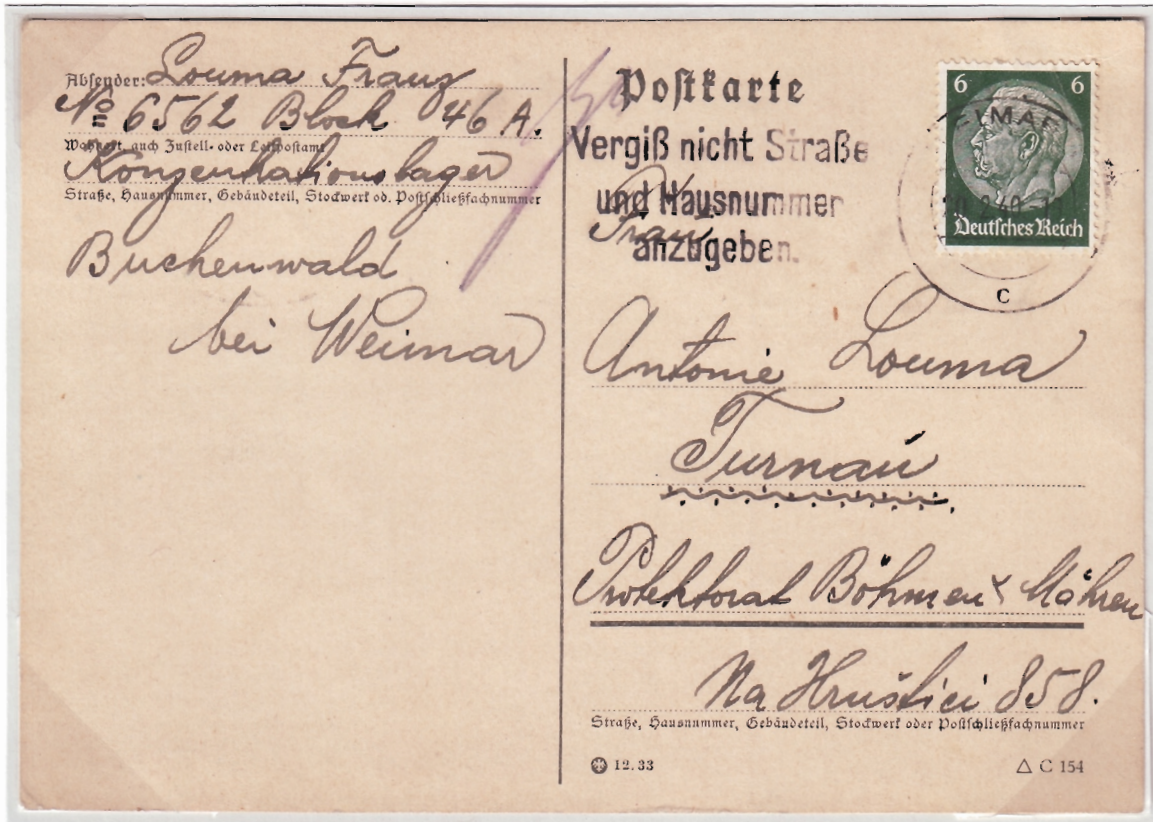 Absender: Louma Franz
No 6562 Block 46 A.
Wohnort, auch Zustell- oder Leitpostamt
Konzentrationslager
Straße, Hausnummer, Gebäudeteil, Stockwerk od. Postschließfachnummer
Buchenwald
bei Weimar
Postkarte
Vergiß nicht Straße
und Hausnummer
anzugeben.
6 6
Deutsches Reich
C
Frau
Antonie Louma
Turnau
Protektorat Böhmen & Mähren
Na Hruštici 858.
Straße, Hausnummer, Gebäudeteil, Stockwerk oder Postschließfachnummer
12.33
△ C 154